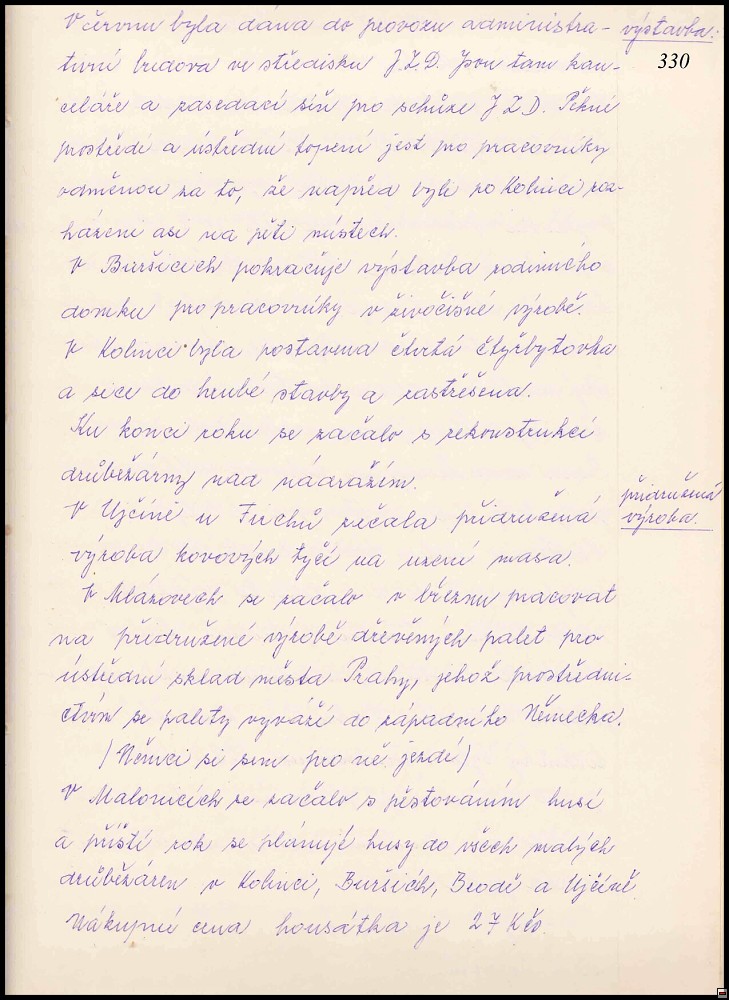 V červnu byla dána do provozu administra- výstavba:
tivní budova ve středisku J.Z.D. Jsou tam kan- 330
celáře a zasedací síň pro schůze J Z D. Pěkné
prostředí a ústřední topení jest pro pracovníky
odměnou za to, že napřed byli po Kolinci roz-
házeni asi na pěti místech.
V Buršicích pokračuje výstavba rodinného
domku pro pracovníky v živočišné výrobě.
V Kolinci byla postavena čtvrtá čtyřbytovka
a sice do hrubé stavby a zastřešena.
Ku konci roku se začalo s rekonstrukcí
drůbežárny nad nádražím.
přidružená
V Ujčíně u Fuchů začala přidružená výroba.
výroba kovových tyčí na uzení masa.
V Mlázovech se začalo v březnu pracovat
na přidružené výrobě dřevěných palet pro
ústřední sklad města Prahy, jehož prostředni-
ctvím se palety vyváží do západního Německa.
(Němci si sem pro ně jezdí)
V Malonicích se začalo s pěstováním husí
a příští rok se plánují husy do všech malých
drůbežáren v Kolinci, Buršicích, Brodě a Ujčíně
Nákupní cena housátka je 27 Kčs.